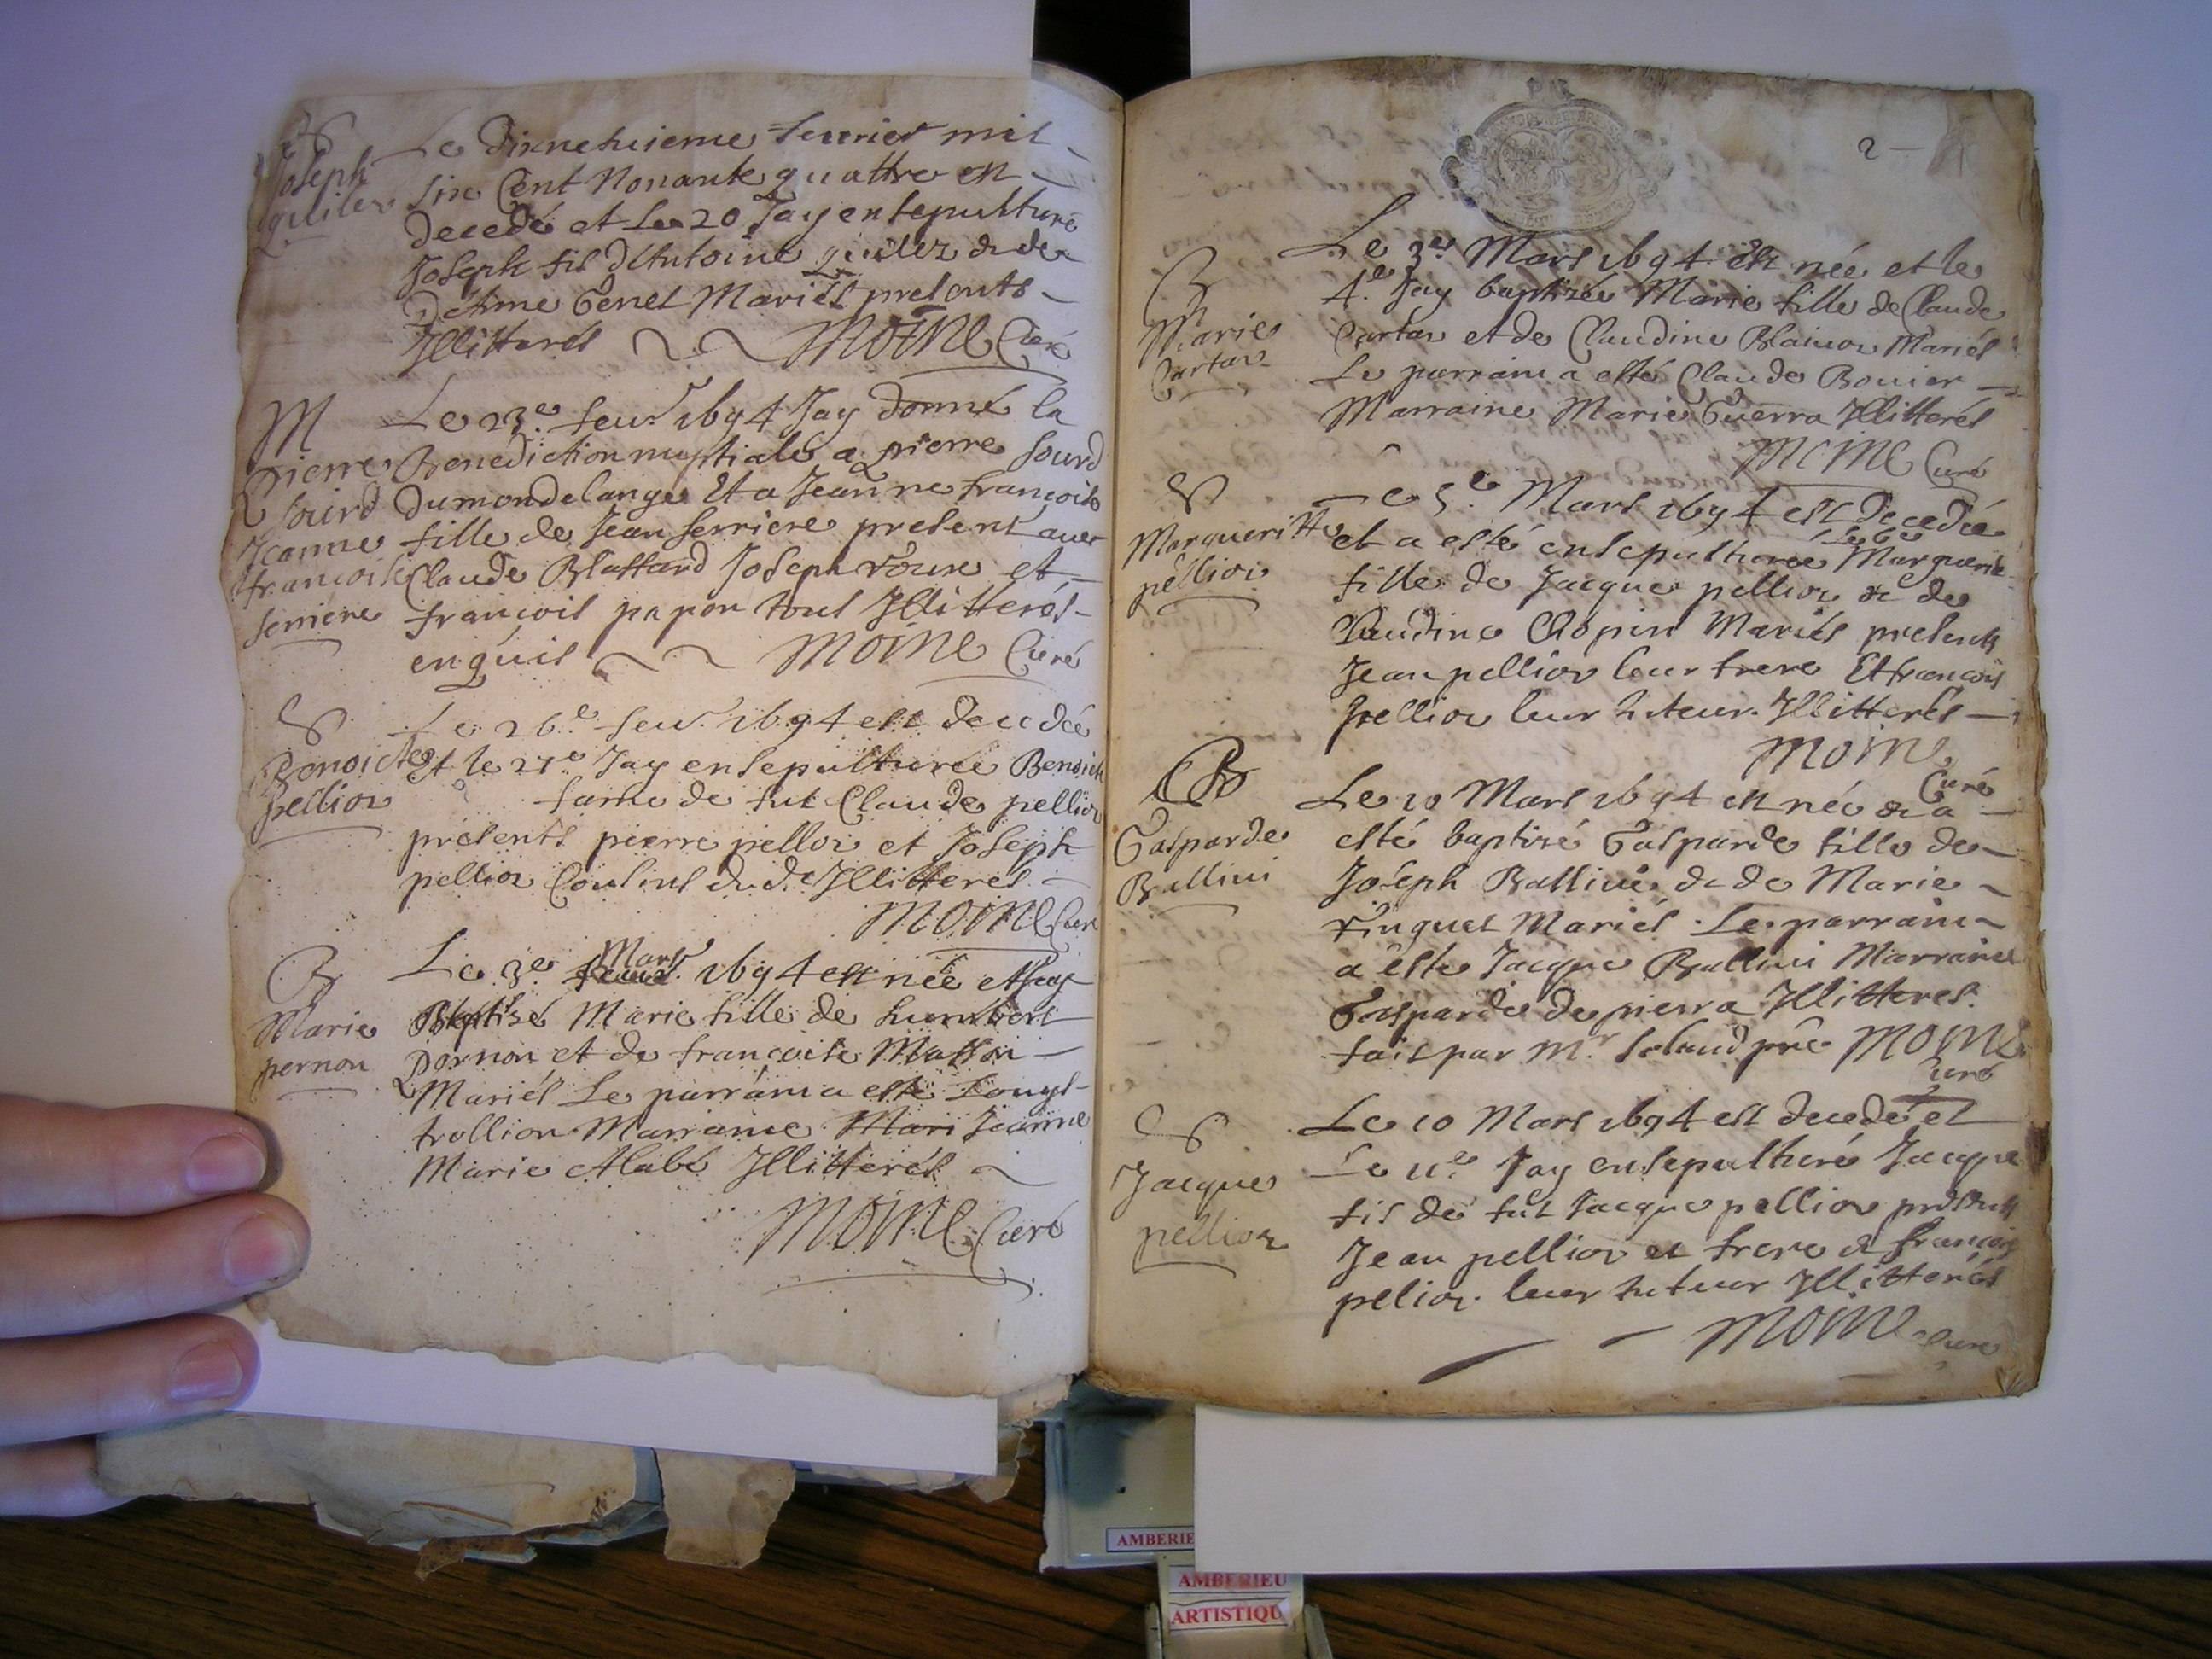 S
Joseph
quiler
Le Dixneuvieme fevrier mil
six Cent Nonante quattre est
Decedé et Le 20 Jay ensepulturé
Joseph fils d'Antoine quiler & de
Genet Mariés presents
Illitterés MOINE Curé
M
pierre
sourd
Jeanne
françoise
serriere
Le 23e fevr. 1694 Jay donné la
Benediction nuptiale a pierre sourd
Dumondelange Et a Jeanne françoise
fille de Jean serriere present avec
Claude Blaffard Joseph roux et
françois papon tous Illitterés
enquis MOINE Curé
S
Benoicte
pellior
Le 26e fev. 1694 est decedée
Et le 27e Jay ensepulturée Benoicte
fame de fut Claude pellior
présents pierre pellor et Joseph
pellior Cousins du d. Illitterés
MOINE Curé
B
Marie
pernon
Le 3e Mars 1694 est née et Jay
Baptisé Marie fille de humbert
pornon et de françoise Masson
Mariés Le parrain a esté Louys
trollion Marraine Mari Jeanne
Marie Alabé Illitterés
MOINE Curé
2
B
Marie
Cartar
Le 3e Mars 1694 Est née et le
4e Jay baptizée Marie fille de Claude
Cartar et de Claudine Mariés
Le parrain a esté Claude Bouier
Marraine Marie Guerra Illitterés
MOINE Curé
S
Margueritte
pellior
Le 5e Mars 1694 est decedée
et a esté ensepulturée Marguerite
fille de Jacque pellior & de
Claudine Chopin Mariés presents
Jean pellior leur frere Et françois
pellior leur tuteur Illitterés
MOINE
Curé
B
Gasparde
Ballini
Le 10 Mars 1694 est née & a
esté baptizé Gasparde fille de
Joseph Ballive & de Marie
ringuet Mariés Le parrain
a esté Jacque Ballini Marraine
Gasparde de pierra Illitteres
fait par Mr pre MOINE
Curé
S
Jacque
pellior
Le 10 Mars 1694 est decedé et
Le 11e Jay ensepulturé Jacque
fis de fut Jacque pellior presents
Jean pellior et frere & françois
pelior leur tuteur Illitterés
MOINE Curé
AMBERIE
AMBERIEU
ARTISTIQU